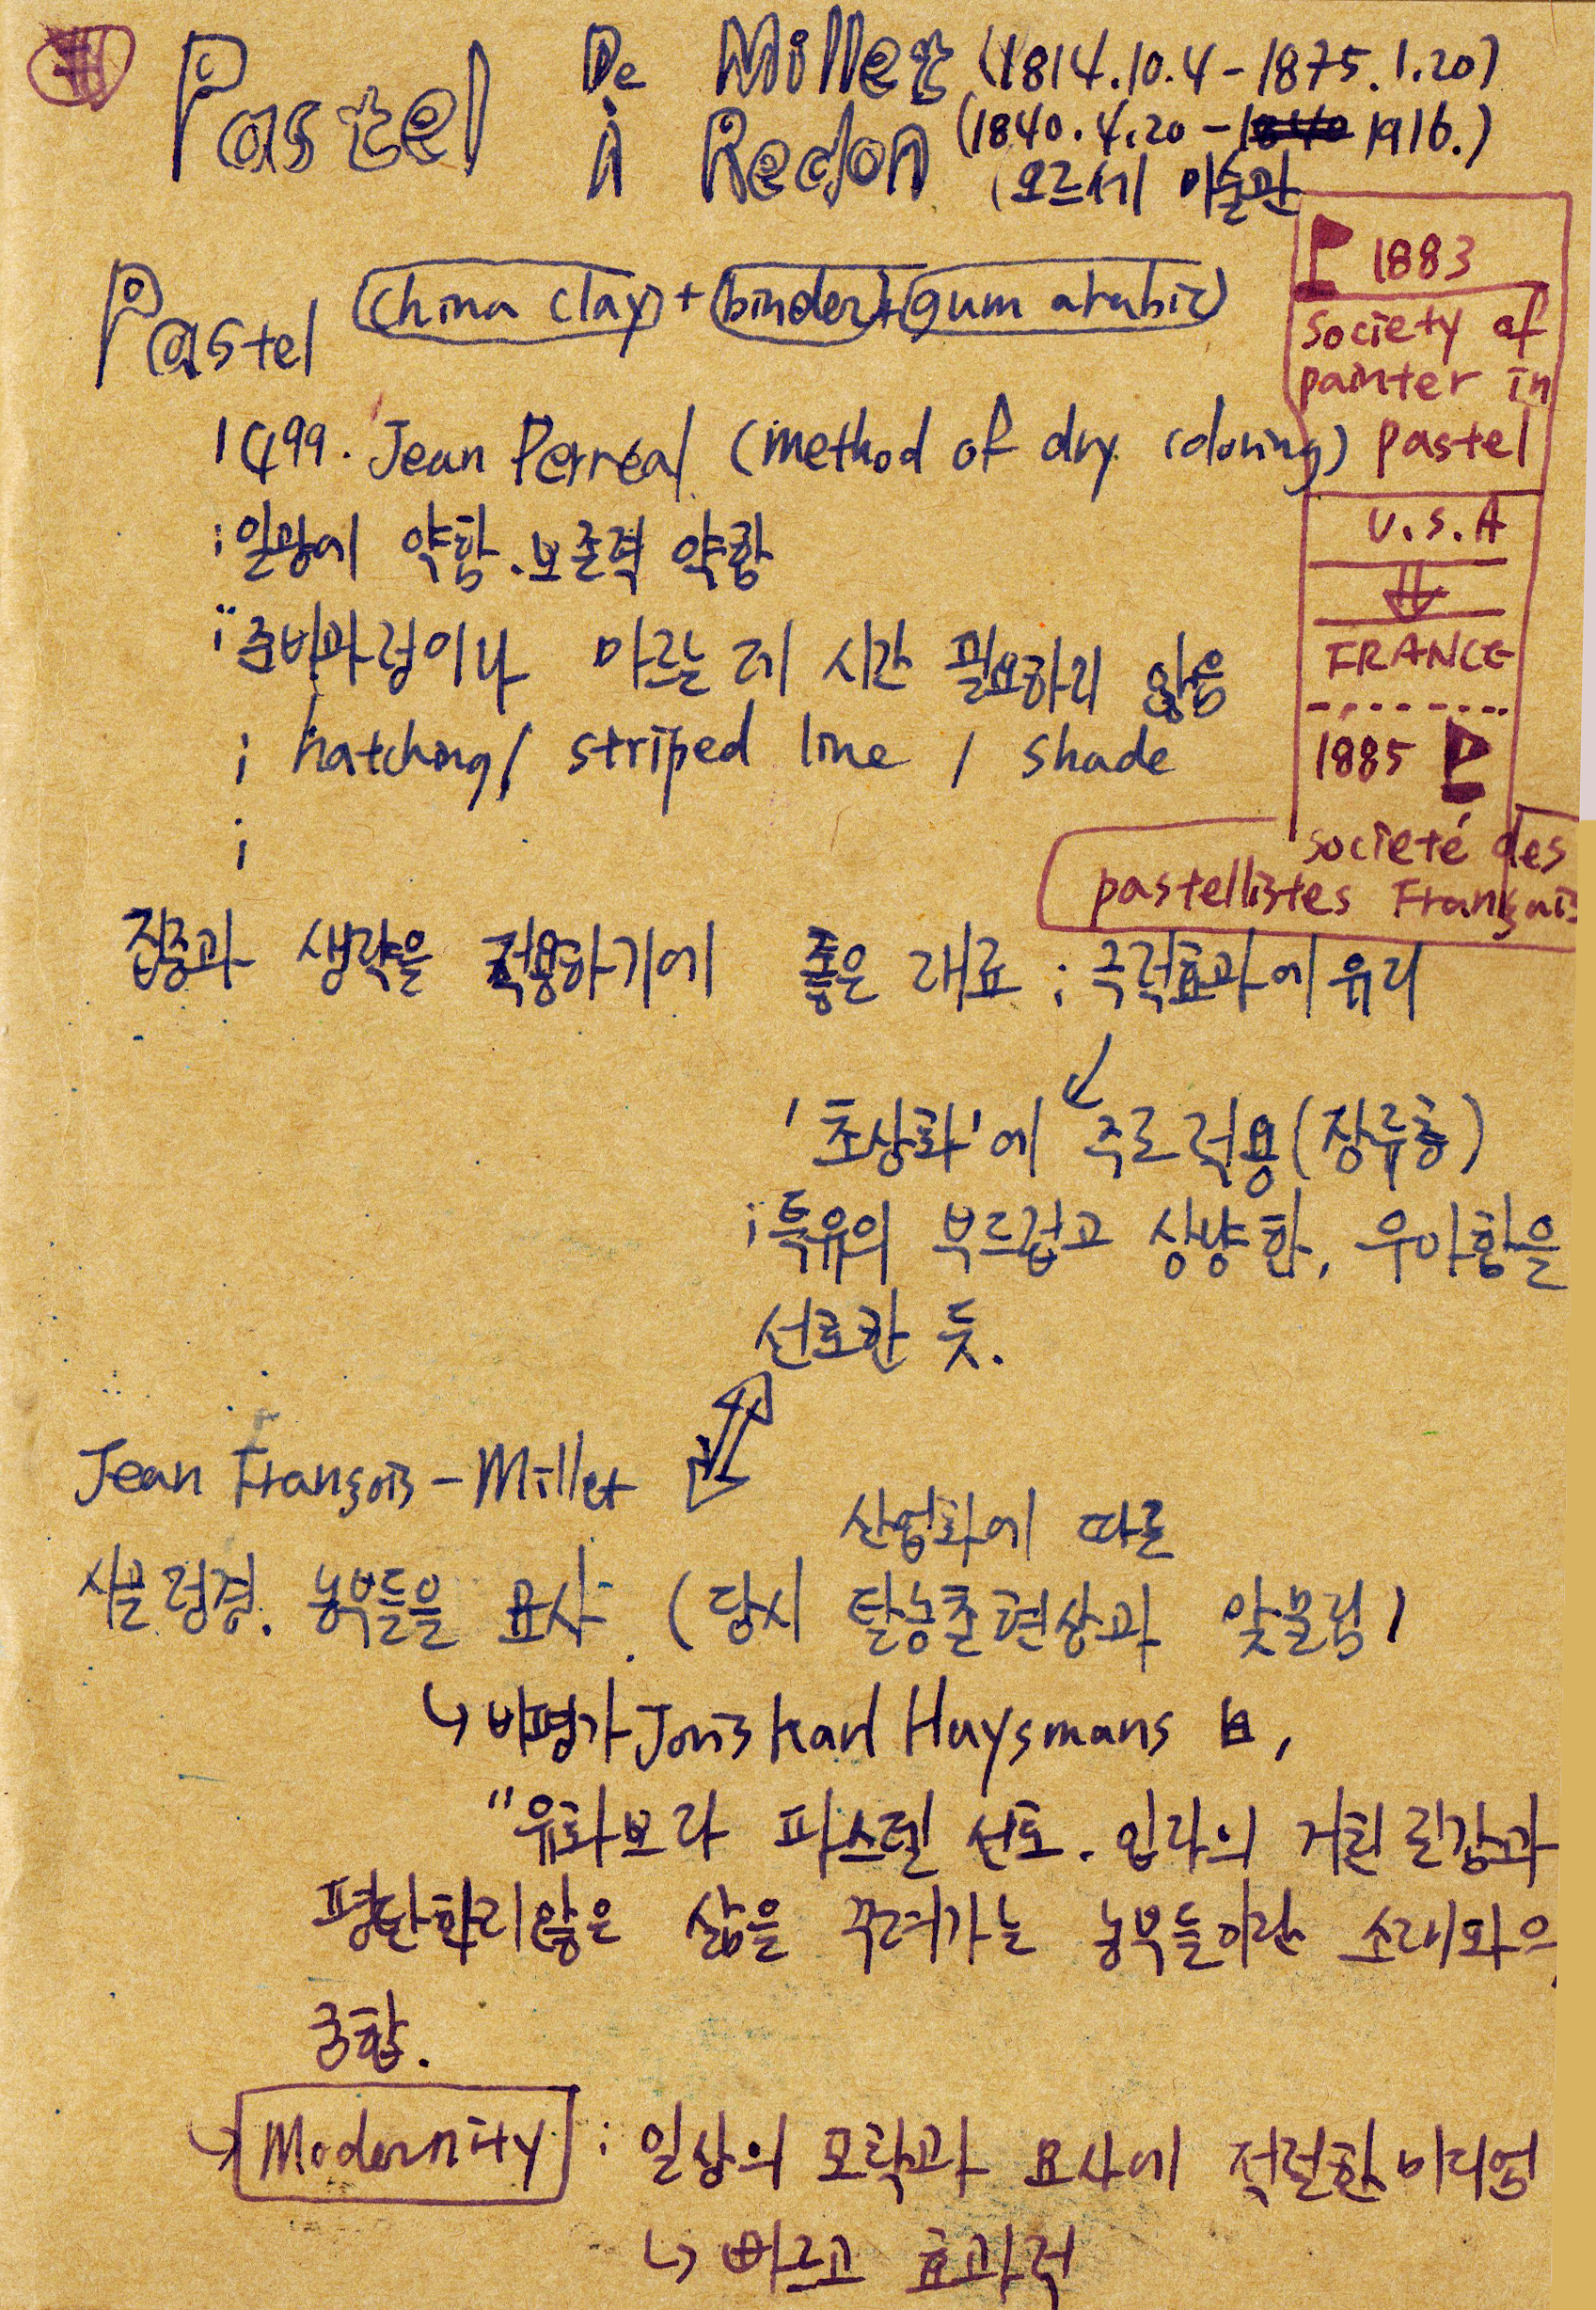 Pastel De Millet (1814.10.4-1875.1.20)
à Redon (1840.4.20-1840 1916.)
(오르세 미술관
Pastel (china clay)+(binder)+(gum arabic)
1499. Jean Perréal (method of dry coloring)
; 일광에 약함. 보존력 약함
;; 준비과정이나 마르는데 시간 필요하지 않음
; hatching / striped line / shade
;
1883
society of
painter in
pastel
U.S.A
FRANCE
1885
societé des
pastellistes Français
집중과 생략을 적용하기에 좋은 재료 ; 극적효과에 유리
'초상화'에 주로 적용(장류층)
; 특유의 부드럽고 상냥한, 우아함을
선호한 듯.
Jean François-Millet
산업화에 따른
시골 정경. 농부들을 묘사. (당시 탈농촌현상과 맞물림)
↳ 비평가 Joris Karl Huysmans 曰,
"유화보다 파스텔 선호. 입자의 거친 질감과
평탄하지않은 삶을 꾸려가는 농부들이란 소재와의
궁합.
↳ Modernity ; 일상의 포착과 묘사에 적절한 미디엄
↳ 빠르고 효과적